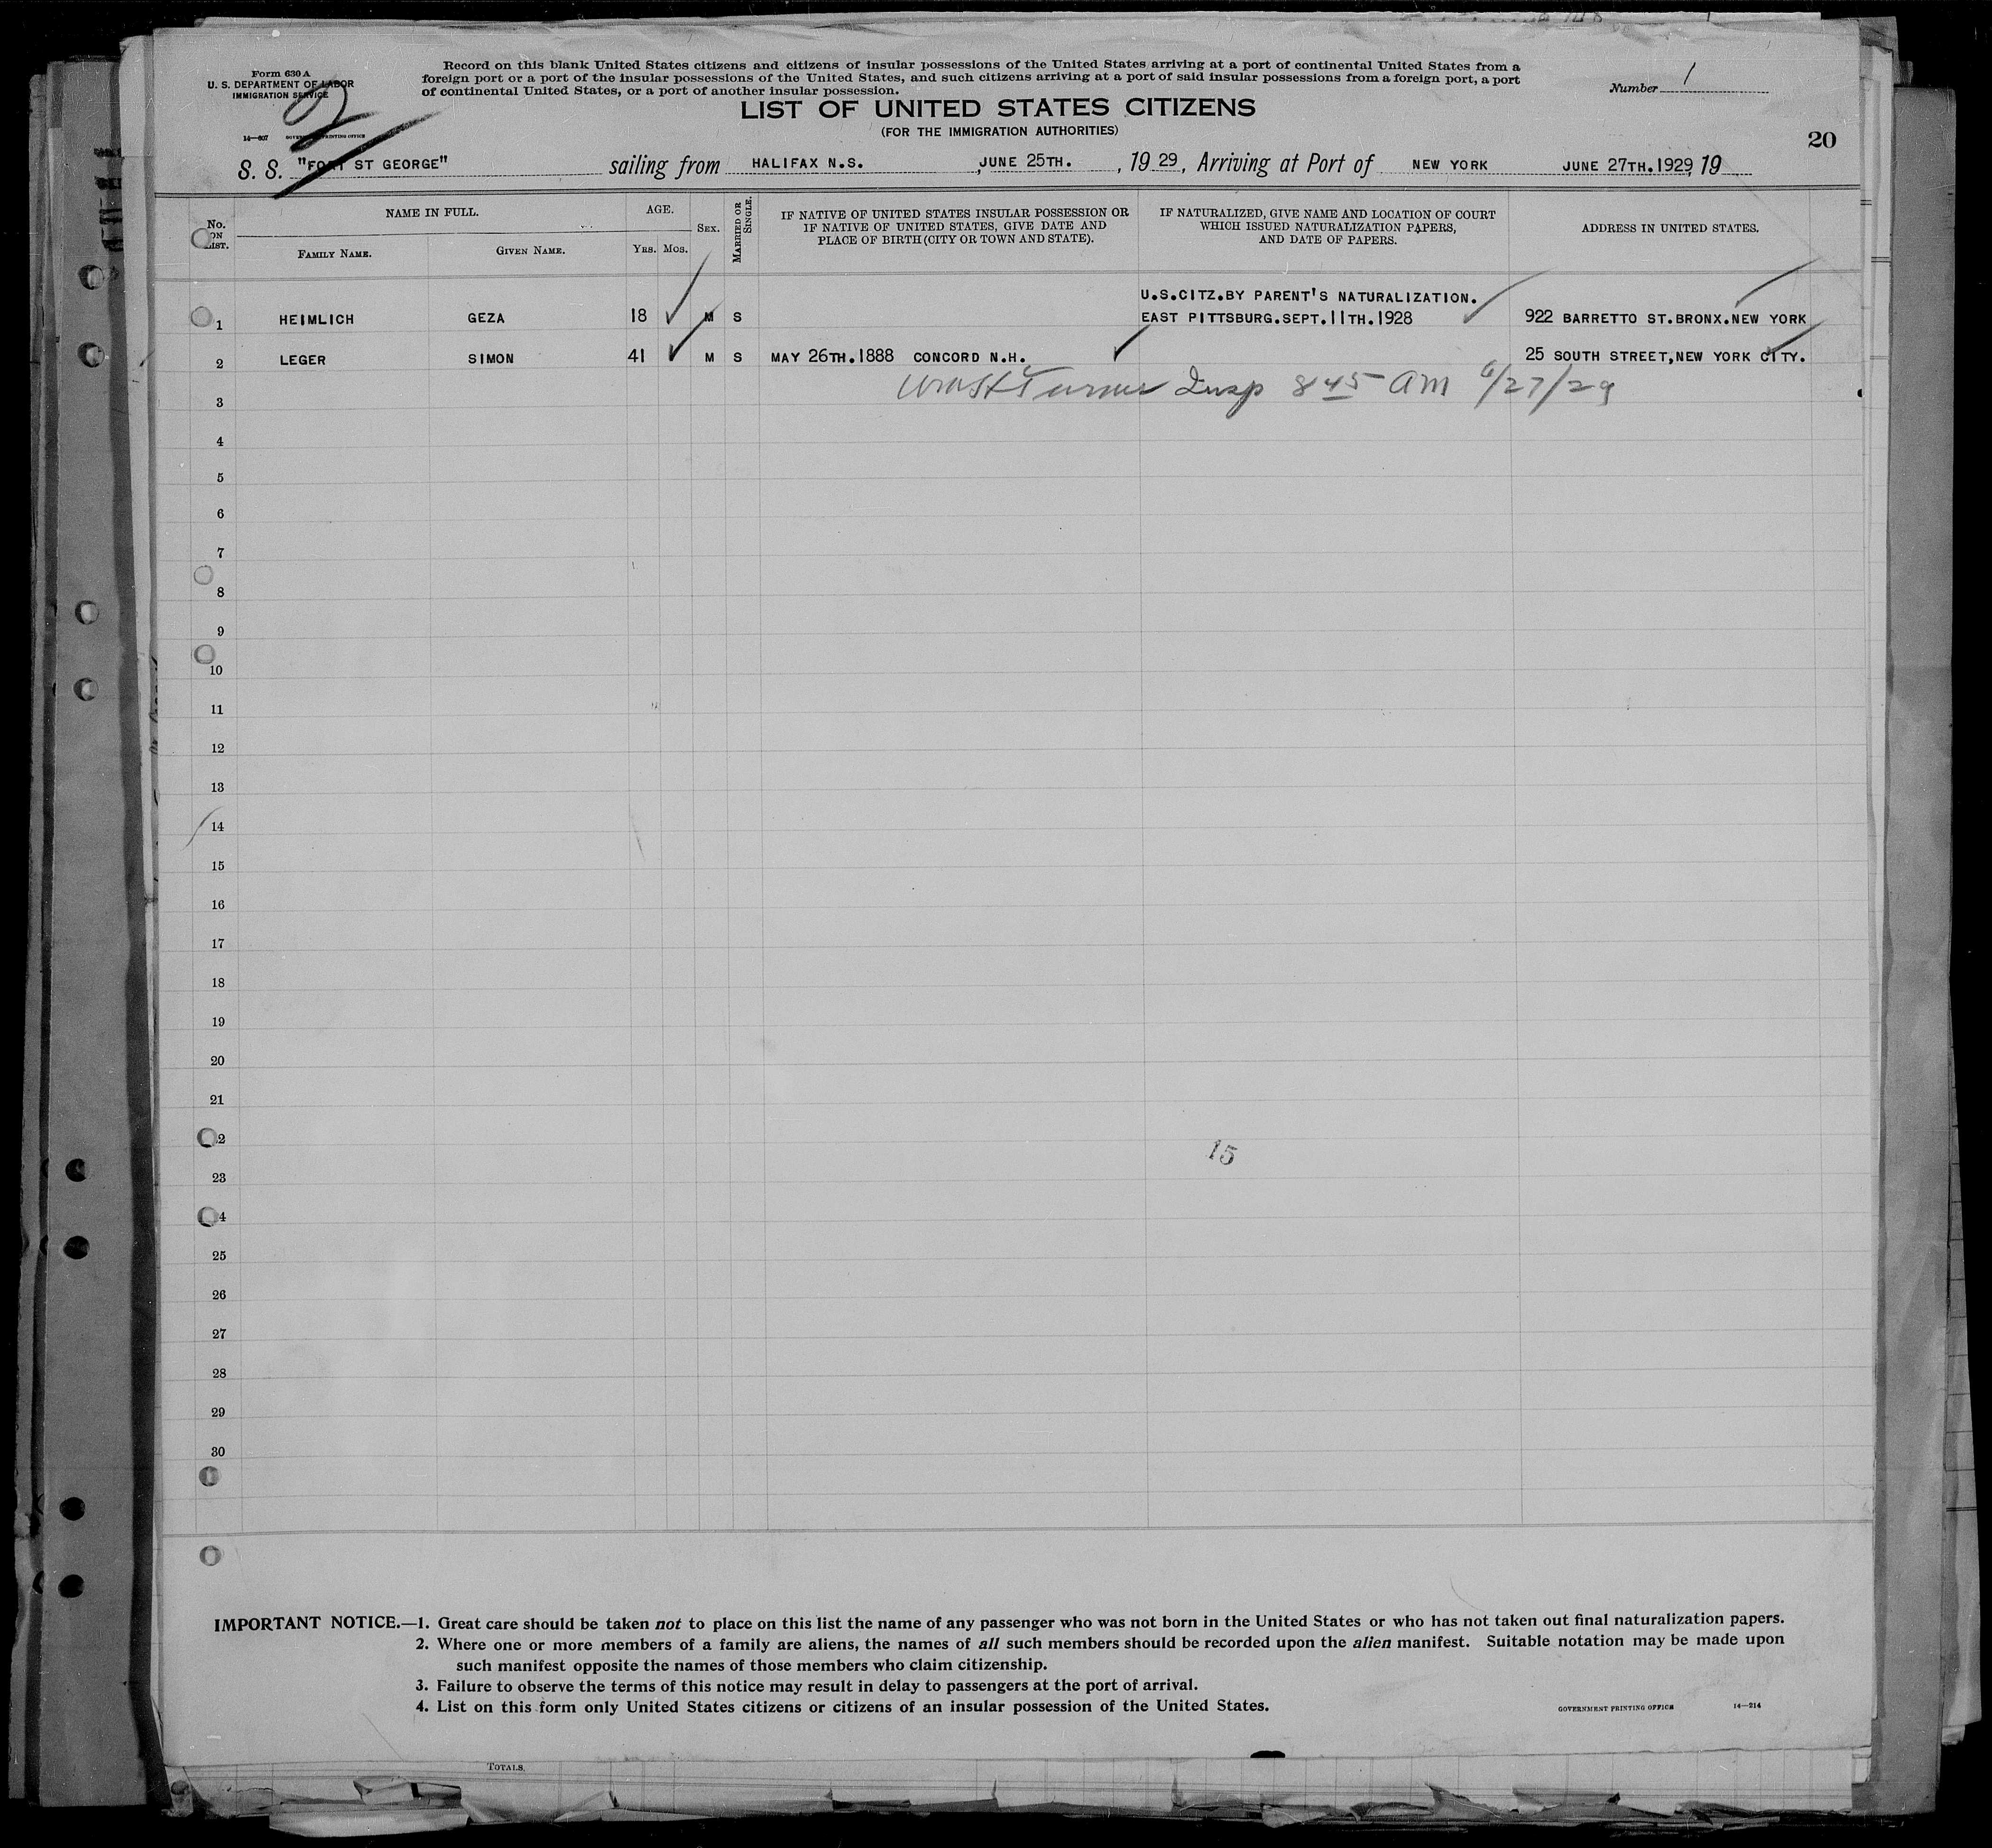 Form 630 A
U. S. DEPARTMENT OF LABOR
IMMIGRATION SERVICE
2
14—607 GOVERNMENT PRINTING OFFICE
Record on this blank United States citizens and citizens of insular possessions of the United States arriving at a port of continental United States from a
foreign port or a port of the insular possessions of the United States, and such citizens arriving at a port of said insular possessions from a foreign port, a port
of continental United States, or a port of another insular possession.
Number 1
LIST OF UNITED STATES CITIZENS
(FOR THE IMMIGRATION AUTHORITIES)
20
S. S. "FORT ST GEORGE" sailing from HALIFAX N.S. , JUNE 25TH. , 19 29, Arriving at Port of NEW YORK JUNE 27TH.1929, 19
No. ON LIST. NAME IN FULL. AGE. SEX. MARRIED OR SINGLE. IF NATIVE OF UNITED STATES INSULAR POSSESSION OR IF NATIVE OF UNITED STATES, GIVE DATE AND PLACE OF BIRTH (CITY OR TOWN AND STATE). IF NATURALIZED, GIVE NAME AND LOCATION OF COURT WHICH ISSUED NATURALIZATION PAPERS, AND DATE OF PAPERS. ADDRESS IN UNITED STATES.
FAMILY NAME. GIVEN NAME. YRS. MOS.
U.S.CITZ.BY PARENT'S NATURALIZATION.
1 HEIMLICH GEZA 18 M S EAST PITTSBURG.SEPT.11TH.1928 922 BARRETTO ST.BRONX.NEW YORK
2 LEGER SIMON 41 M S MAY 26TH.1888 CONCORD N.H. 25 SOUTH STREET,NEW YORK CITY.
3 Turner Insp 8 45 AM 6/27/29
4
5
6
7
8
9
10
11
12
13
14
15
16
17
18
19
20
21
22
15
23
24
25
26
27
28
29
30
IMPORTANT NOTICE.—1. Great care should be taken not to place on this list the name of any passenger who was not born in the United States or who has not taken out final naturalization papers.
2. Where one or more members of a family are aliens, the names of all such members should be recorded upon the alien manifest. Suitable notation may be made upon
such manifest opposite the names of those members who claim citizenship.
3. Failure to observe the terms of this notice may result in delay to passengers at the port of arrival.
4. List on this form only United States citizens or citizens of an insular possession of the United States.
GOVERNMENT PRINTING OFFICE 14—214
TOTALS.